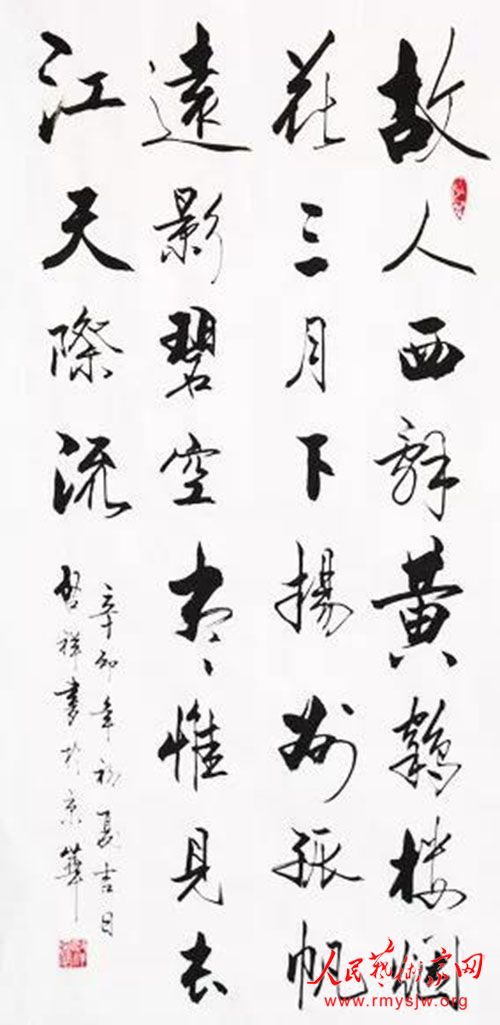 故人西辭黄鶴楼烟
花三月下揚州孤帆
遠影碧空尽惟見长
江天際流
辛卯年初夏吉日
祥書於京華
人民藝術家网
www.rmysjw.org